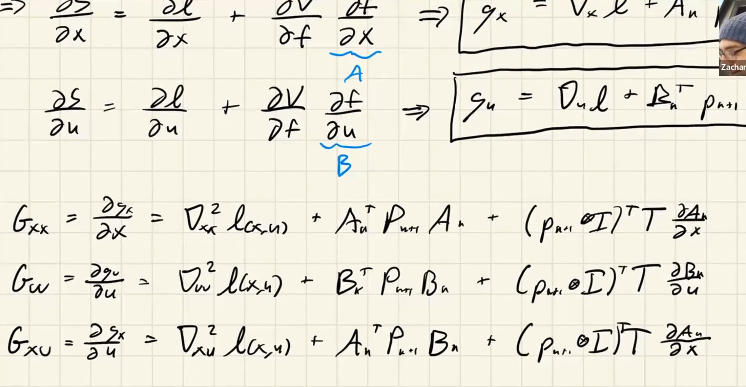 ⇒ ∂S/∂x = ∂l/∂x + ∂V/∂f ∂f/∂x ⇒ g_x = ∇_x l + A_n
A
Zachar
∂S/∂u = ∂l/∂u + ∂V/∂f ∂f/∂u ⇒ g_u = ∇_u l + B_n^T p_{n+1}
B
G_xx = ∂g_x/∂x = ∇²_xx l(x,u) + A_n^T P_{n+1} A_n + (p_{n+1} ⊗ I)^T T ∂A_n/∂x
G_uu = ∂g_u/∂u = ∇²_uu l(x,u) + B_n^T P_{n+1} B_n + (p_{n+1} ⊗ I)^T T ∂B_n/∂u
G_xu = ∂g_x/∂u = ∇²_xu l(x,u) + A_n^T P_{n+1} B_n + (p_{n+1} ⊗ I)^T T ∂A_n/∂x